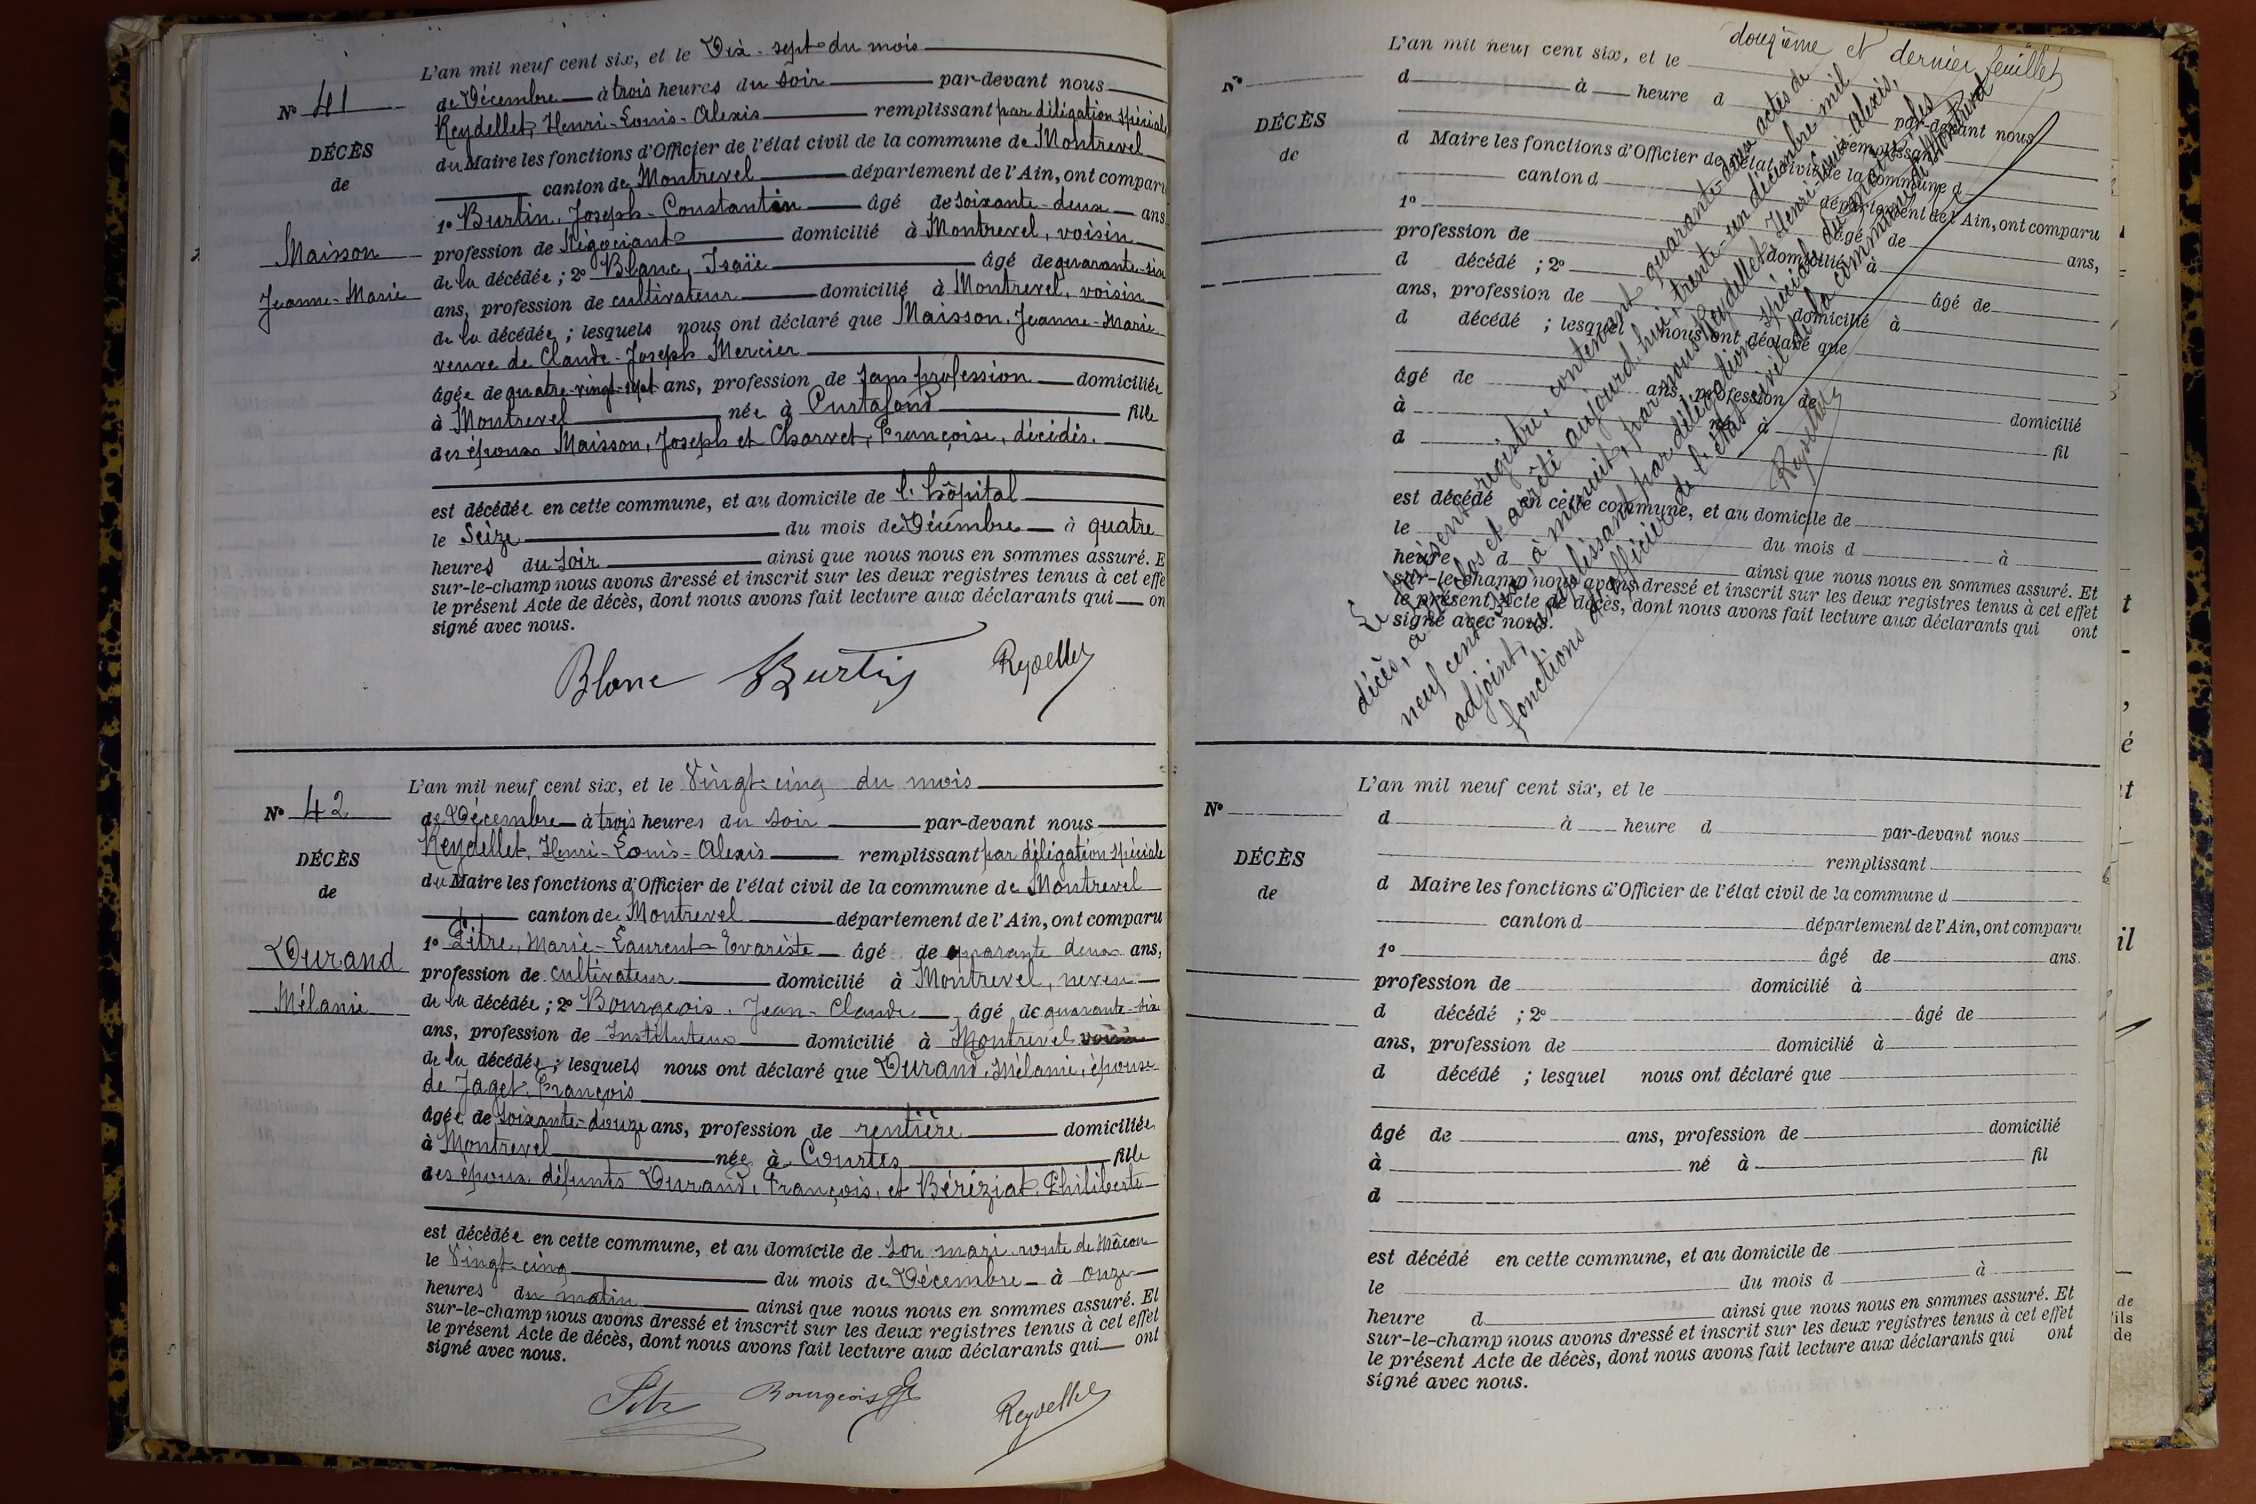 L'an mil neuf cent six, et le Dix-sept du mois
N° 41
de Décembre à trois heures du soir par-devant nous
Reydellet, Henri-Louis-Alexis remplissant par délégation spéciale
DÉCÈS
du Maire les fonctions d'Officier de l'état civil de la commune de Montrevel
de
canton de Montrevel département de l'Ain, ont comparu
1° Burtin, Joseph-Constantin âgé de soixante-deux ans
Maisson
profession de Négociant domicilié à Montrevel, voisin
de la décédée ; 2° Blanc, Isaïe âgé de quarante-six
Jeanne-Marie
ans, profession de cultivateur domicilié à Montrevel, voisin
de la décédée ; lesquels nous ont déclaré que Maisson, Jeanne-Marie
veuve de Claude-Joseph Mercier
âgée de quatre-vingt-sept ans, profession de sans profession domiciliée
à Montrevel née à Curtafond fille
des époux Maisson, Joseph et Charvet, Françoise, décédés.
est décédée en cette commune, et au domicile de l'hôpital
le Seize du mois de Décembre à quatre
heures du soir ainsi que nous nous en sommes assuré. E
sur-le-champ nous avons dressé et inscrit sur les deux registres tenus à cet effe
le présent Acte de décès, dont nous avons fait lecture aux déclarants qui on
signé avec nous.
Blanc Burtin Reydellet
L'an mil neuf cent six, et le Vingt-cinq du mois
N° 42
de Décembre à trois heures du soir par-devant nous
Reydellet, Henri-Louis-Alexis remplissant par délégation spéciale
DÉCÈS
du Maire les fonctions d'Officier de l'état civil de la commune de Montrevel
de
canton de Montrevel département de l'Ain, ont comparu
1° Pitre, Marie-Laurent-Evariste âgé de quarante deux ans,
Durand
profession de cultivateur domicilié à Montrevel, neveu
Mélanie
de la décédée ; 2° Bourgeois, Jean-Claude âgé de quarante-six
ans, profession de Instituteur domicilié à Montrevel voisin
de la décédée ; lesquels nous ont déclaré que Durand, Mélanie, épouse
de Jaget, François
âgée de soixante-douze ans, profession de rentière domiciliée
à Montrevel née à Courtes fille
des époux défunts Durand, François, et Béréziat, Philiberte
est décédée en cette commune, et au domicile de son mari route de Mâcon
le Vingt-cinq du mois de Décembre à onze
heures du matin ainsi que nous nous en sommes assuré. Et
sur-le-champ nous avons dressé et inscrit sur les deux registres tenus à cet effet
le présent Acte de décès, dont nous avons fait lecture aux déclarants qui ont
signé avec nous.
Pitre Bourgeois Reydellet
douzième et dernier feuillet
L'an mil neuf cent six, et le
N°
d à heure d par-devant nous
remplissant
DÉCÈS
de
d Maire les fonctions d'Officier de l'état civil de la commune d
canton d département de l'Ain, ont comparu
1° âgé de ans,
profession de domicilié à
d décédé ; 2° âgé de
ans, profession de domicilié à
d décédé ; lesquel nous ont déclaré que
âgé de ans, profession de domicilié
à né à fil
d
est décédé en cette commune, et au domicile de
le du mois d à
heure d ainsi que nous nous en sommes assuré. Et
sur-le-champ nous avons dressé et inscrit sur les deux registres tenus à cet effet
le présent Acte de décès, dont nous avons fait lecture aux déclarants qui ont
signé avec nous.
Le présent registre contenant quarante-deux actes de
décès, a été clos et arrêté aujourd'hui, trente-un décembre mil
neuf cent six, à minuit, par nous Reydellet Henri-Louis-Alexis,
adjoint, remplissant par délégation spéciale du maire les
fonctions d'officier de l'état civil de la commune de Montrevel
Reydellet
L'an mil neuf cent six, et le
N°
d à heure d par-devant nous
remplissant
DÉCÈS
de
d Maire les fonctions d'Officier de l'état civil de la commune d
canton d département de l'Ain, ont comparu
1° âgé de ans.
profession de domicilié à
d décédé ; 2° âgé de
ans, profession de domicilié à
d décédé ; lesquel nous ont déclaré que
âgé de ans, profession de domicilié
à né à fil
d
est décédé en cette commune, et au domicile de
le du mois d à
heure d ainsi que nous nous en sommes assuré. Et
sur-le-champ nous avons dressé et inscrit sur les deux registres tenus à cet effet
le présent Acte de décès, dont nous avons fait lecture aux déclarants qui ont
signé avec nous.